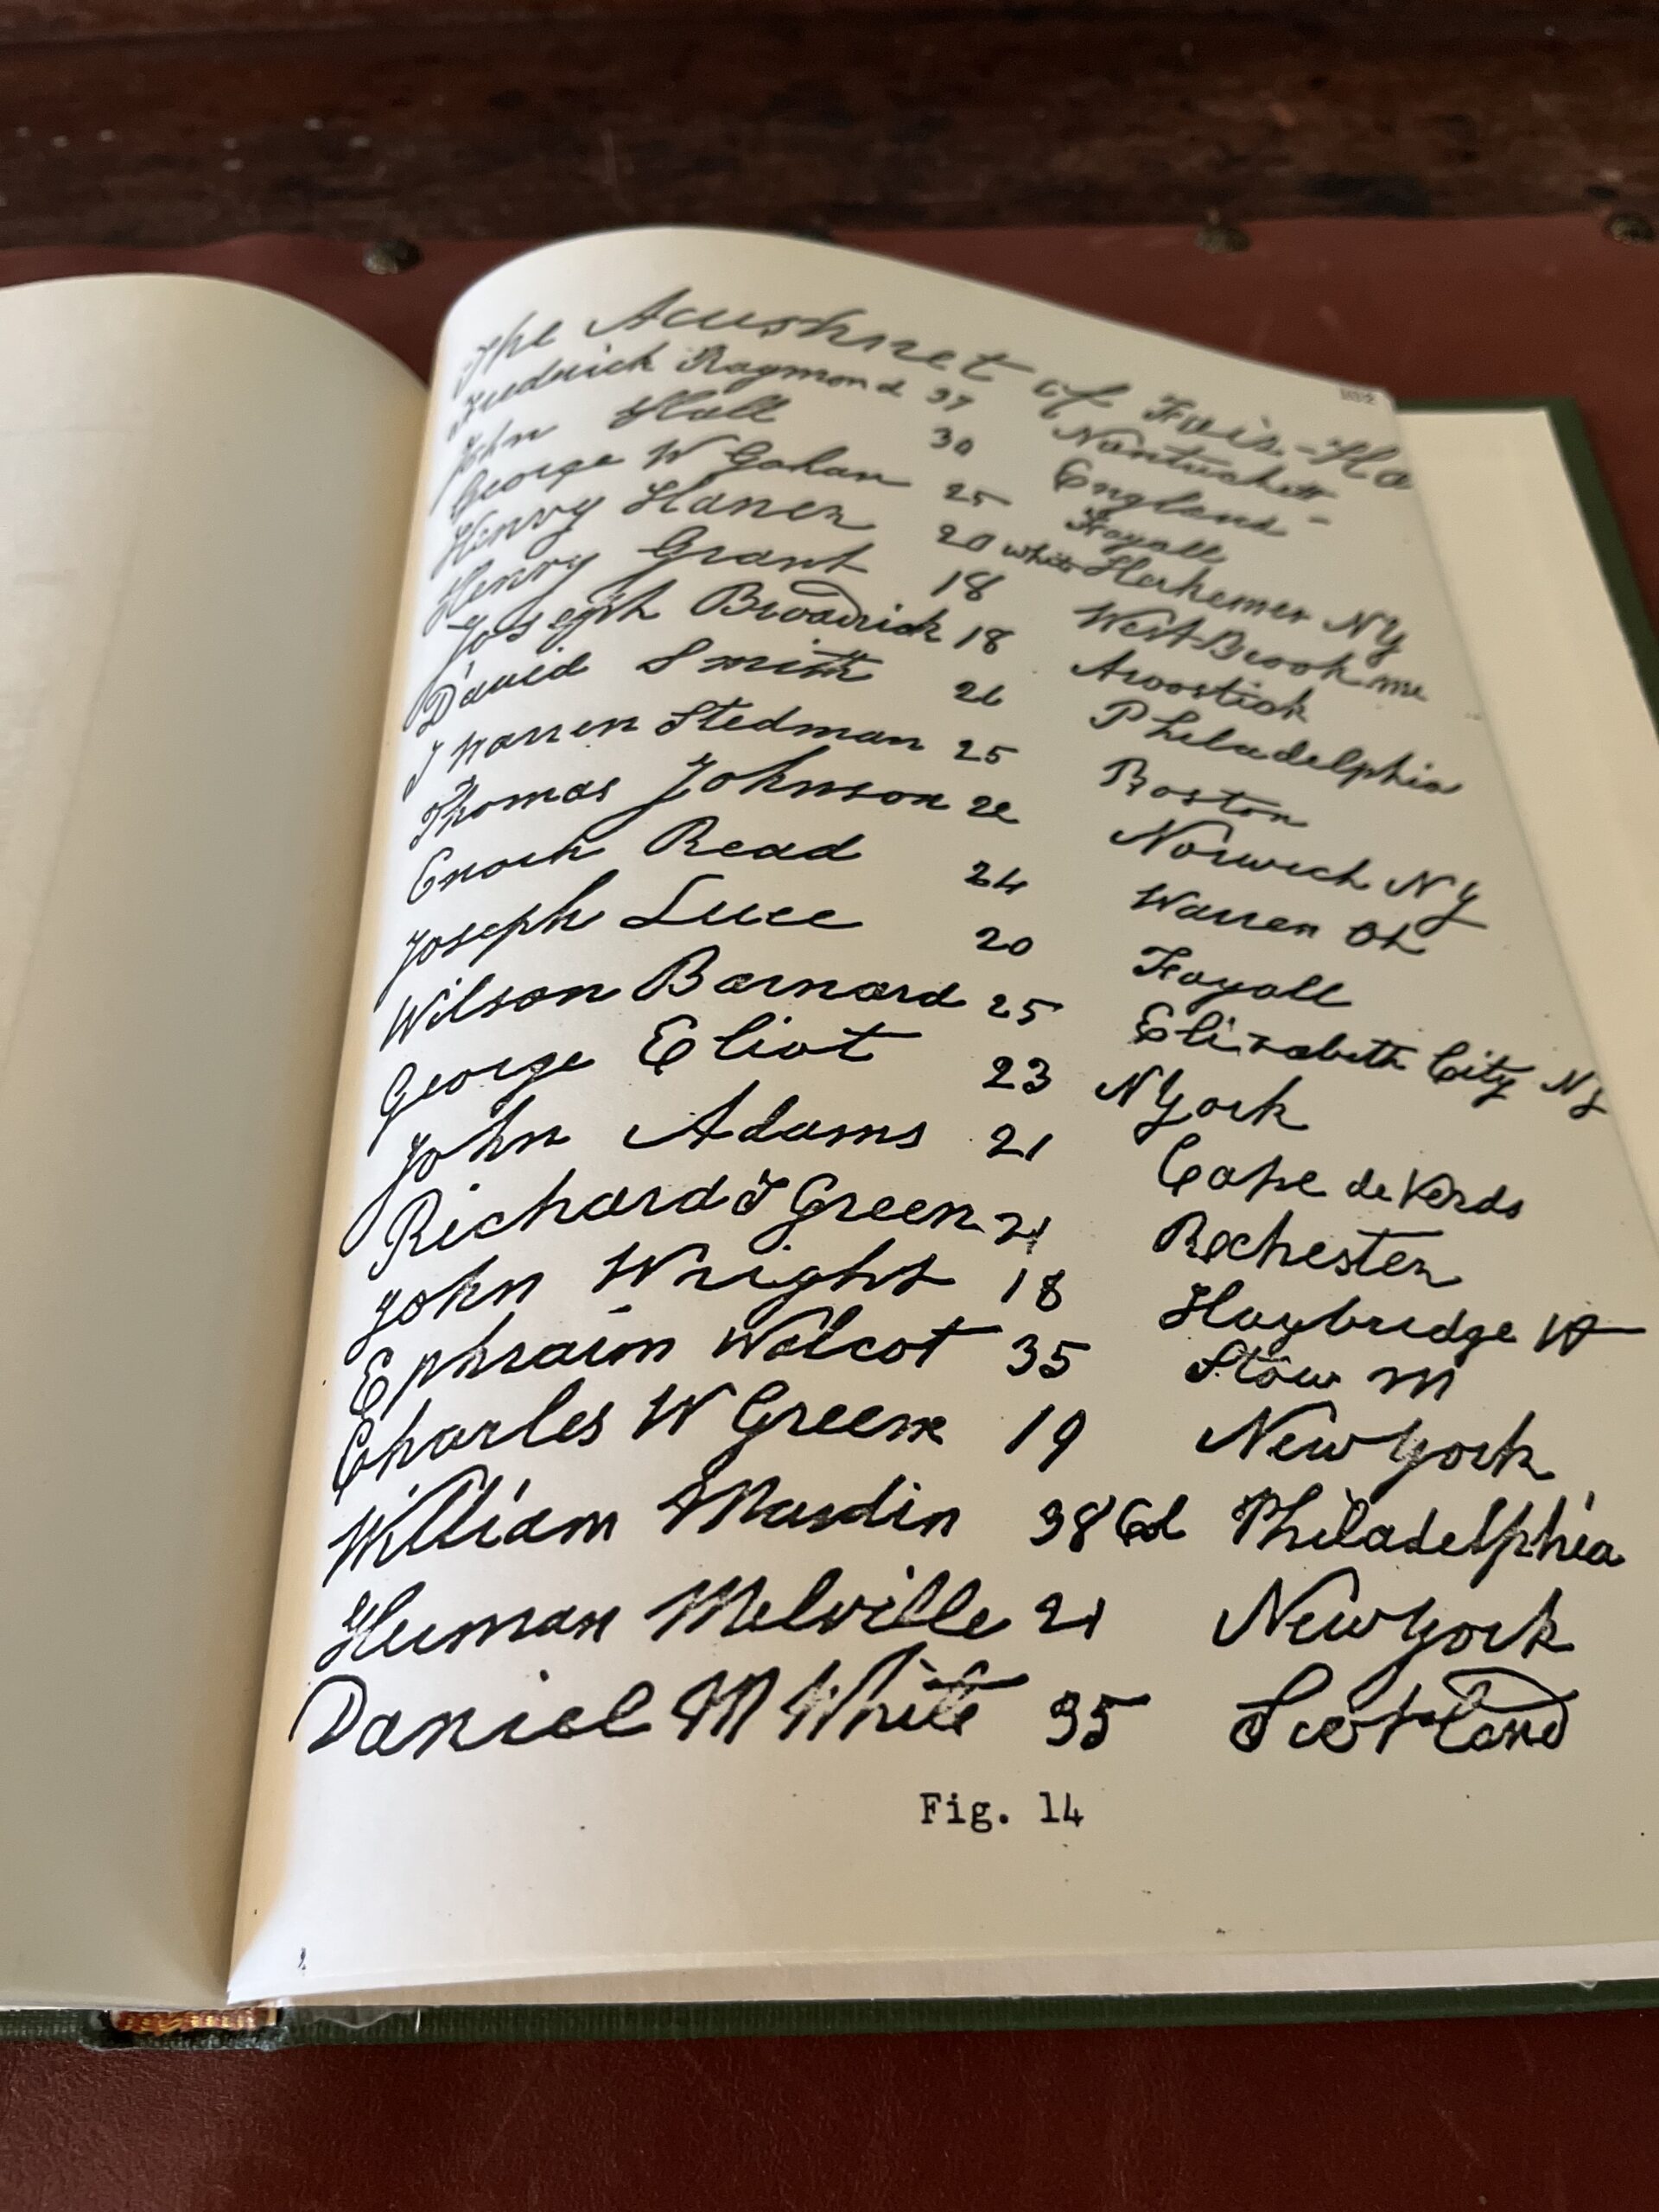 The Acushnet of Fair-Ha
Frederick Raymond 37 Nantuckett
John Hall 30 England -
George W Gahan 25 Fayall
Henry Haner 20 white Herkemer NY
Henry Grant 18 West Brook me
Joseph Broadrick 18 Aroostick
David Smith 26 Philadelphia
J Warren Stedman 25 Boston
Thomas Johnson 22 Norwich NY
Enoch Read 24 Warren
Joseph Luce 20 Fayall
Wilson Barnard 25 Elizabeth City NJ
George Eliot 23 N York
John Adams 21 Cape de Verds
Richard T Green 21 Rochester
John Wright 18 Haybridge Vt
Ephraim Walcot 35 Stow M
Charles W Green 19 New York
William Maudin 38 Cd Philadelphia
Herman Melville 21 New York
Daniel M White 35 Scotland
Fig. 14